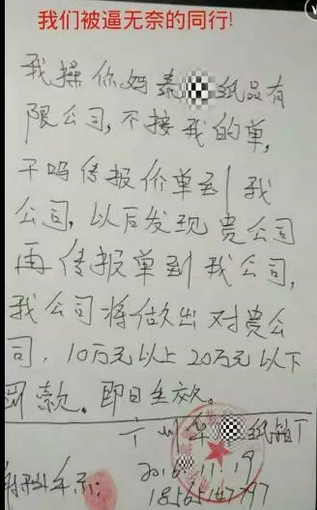 我们被逼无奈的同行!
我操你妈泰纸品有
限公司,不接我的单,
干吗传报价单到我
公司,以后发现贵公司
再传报单到我公司,
我公司将做出对贵公
司,10万元以上20万元以下
罚款。即日生效。
州华纸品
11.19